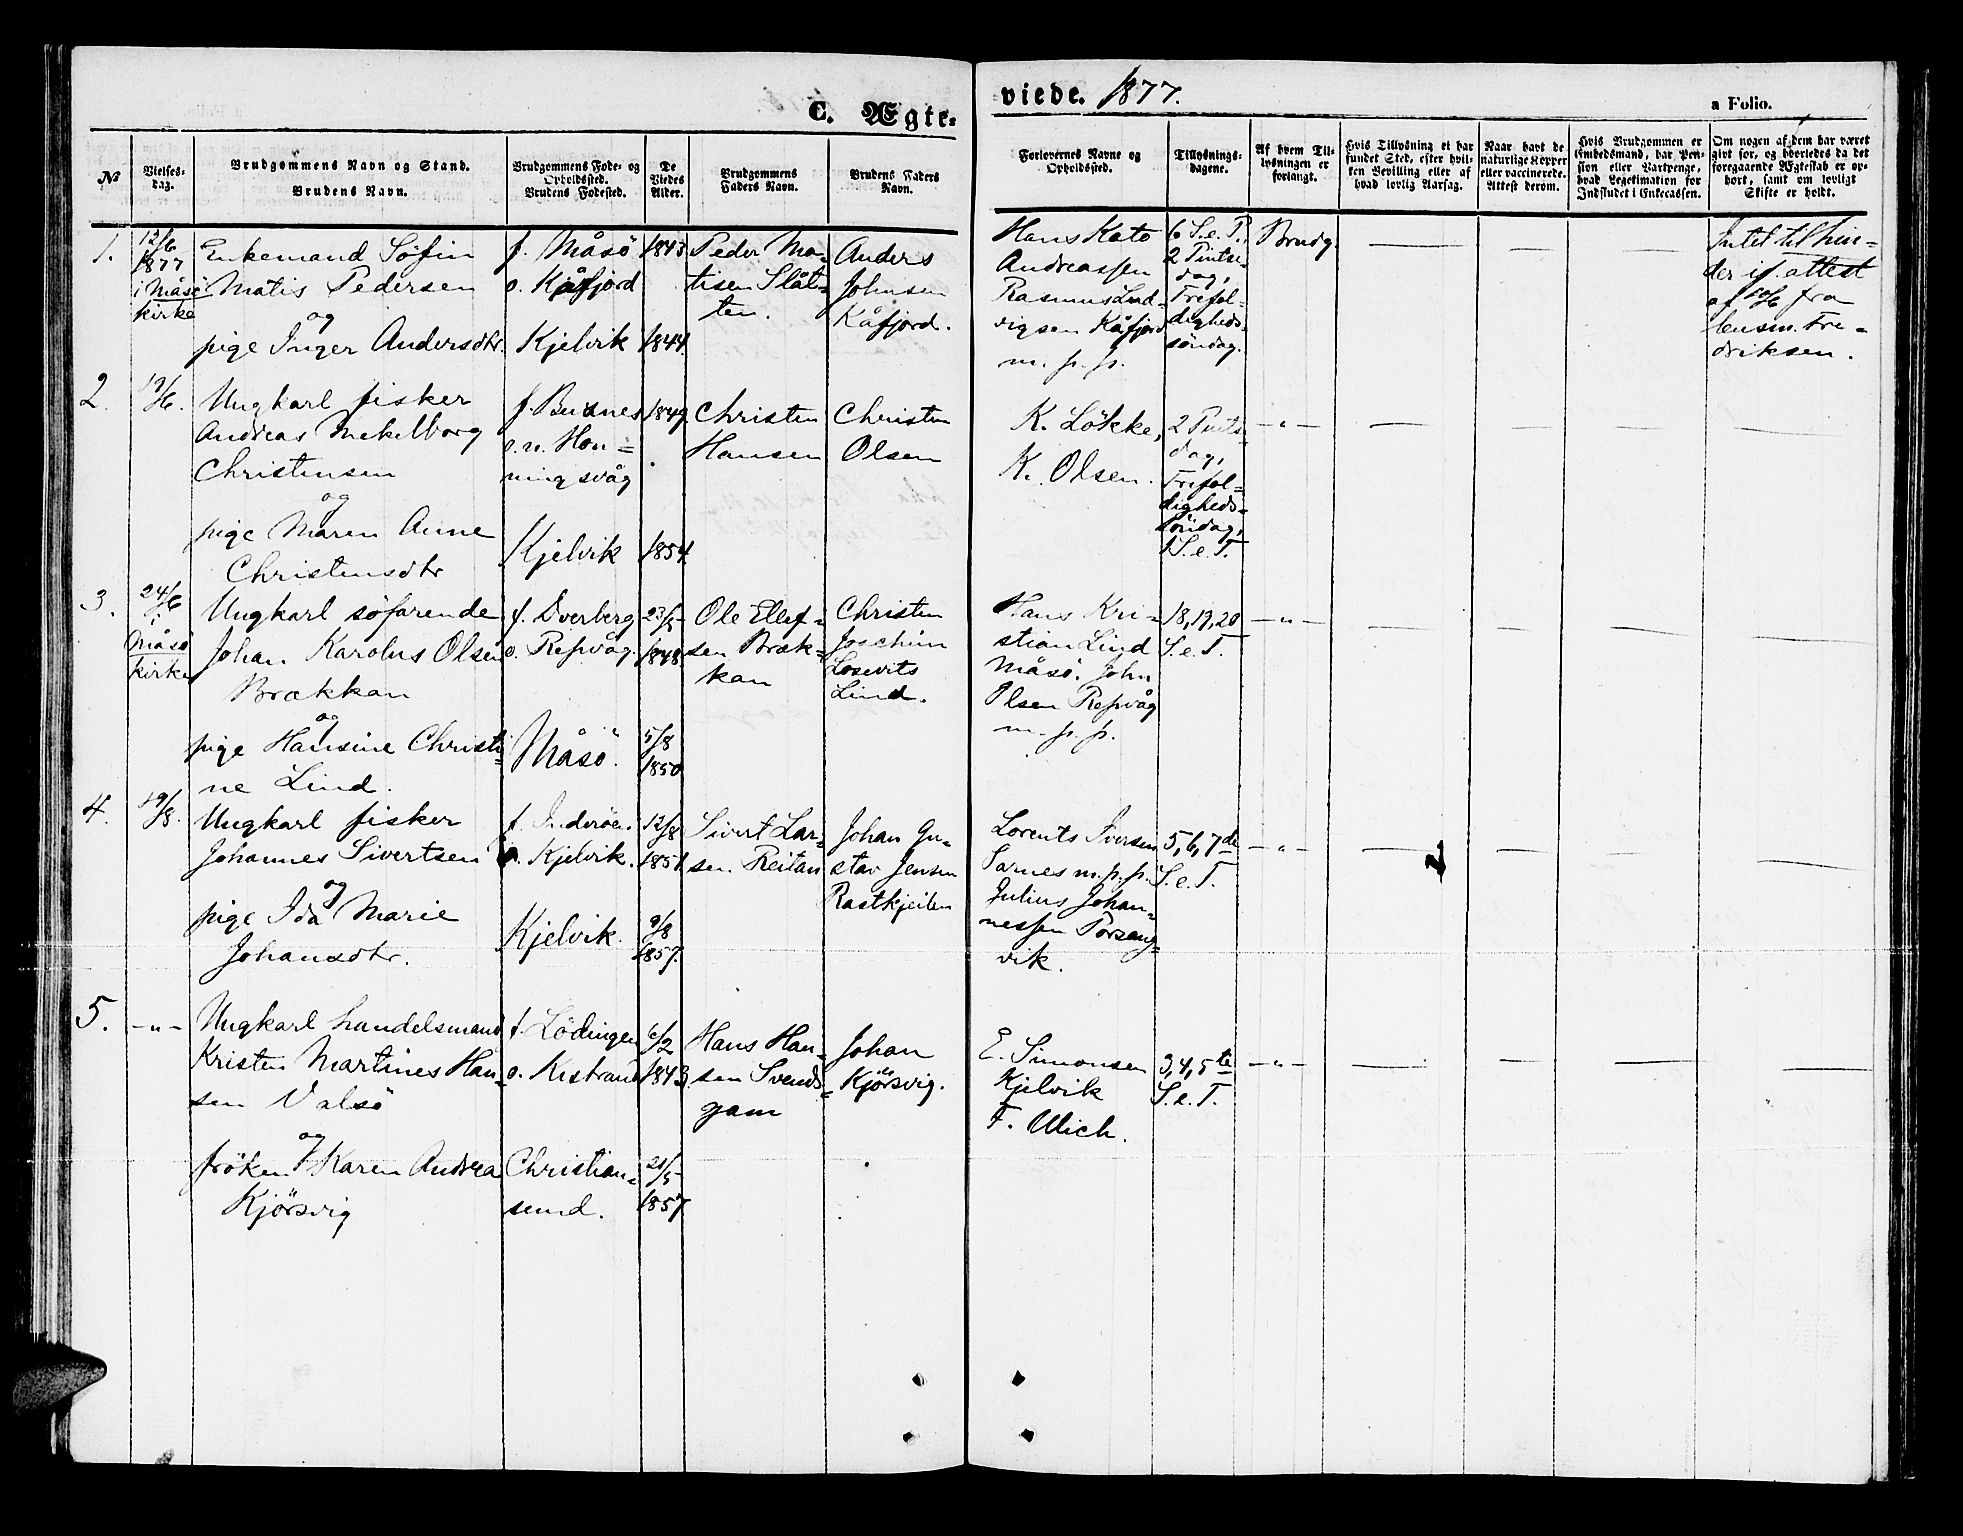 C. Ægte-
viede. 1877.
a Folio.
№
Vielses-
dag.
Brudgommens Navn og Stand.
Brudens Navn.
Brudgommens Føde- og
Opholdssted.
Brudens Fødested.
De
Viedes
Alder.
Brudgommens
Faders Navn.
Brudens Faders
Navn.
Forlovernes Navne og
Opholdssted.
Tillysnings-
dagene.
Af hvem Til-
lysningen er
forlangt.
Hvis Tillysning ei har
fundet Sted, efter hvil-
ken Bevilling eller af
hvad lovlig Aarsag.
Naar havt de
naturlige Kopper
eller vaccinerede.
Attest derom.
Hvis Brudgommen er
Embedsmand, har Pen-
sion eller Vartpenge,
hvad Legitimation for
Indskudet i Enkecassen.
Om nogen af dem har været
gift før, og hvorledes da det
foregaaende Ægteskab er op-
hørt, samt om lovligt
Skifte er holdt.
1.
12/6
1877
i Måsö
kirke
Enkemand Söfin
Matis Pedersen
og
pige Inger Andersdtr.
f. Måsö
o. Kåfjord
Kjelvik
1843
1844.
Peder Ma-
tisen Slåt-
ten.
Anders
Johnsen
Kåfjord.
Hans Kato
Andreassen
Rasmus Lud-
vigsen Kåfjord
m. p. p.
6 S. e. P.,
2 Pintse-
dag,
Trefol-
digheds-
söndag.
Brudg.
Intet til hin-
der if. attest
af 10/6 fra
lensm. Fre-
driksen.
2.
13/6.
Ungkarl fisker
Andreas Mekelborg
Christensen
og
pige Maren Anne
Christensdtr
f. Buxnes
o. n. Hon-
ningsvåg
Kjelvik
1849.
1854.
Christen
Hansen
Christen
Olsen
K. Lökke,
K. Olsen.
2 Pints-
dag,
Trefol-
digheds-
söndag,
1 S. e. T.
-„-
3.
24/6
i
Måsö
kirke
Ungkarl söfarende
Johan Karolus Olsen
Brækkan
og
pige Hansine Christi-
ne Lind.
f. Dverberg
o. Repvåg.
Måsö.
23/5
1848.
5/8
1850
Ole Ellef-
sen Bræk-
kan
Christen
Joachim
Losevits
Lind.
Hans Kri-
stian Lind
Måsö. John
Olsen Repvåg
m. p. p.
18, 19, 20
S. e. T.
-„-
4.
19/8.
Ungkarl fisker
Johannes Sivertsen
og
pige Ida Marie
Johansdtr.
f. Inderöen.
o. Kjelvik.
Kjelvik.
12/8
1851.
9/8
1857.
Sivert Lar-
sen Reitan
Johan Gu-
stav Jensen
Rastkjeilen
Lorents Iversen
Sarnes m. p. p.
Julius Johan-
nessen Porsang-
vik.
5, 6, 7de
S. e. T.
-„-
5.
-„-
Ungkarl handelsmand
Kristen Martines Han-
sen Valsö
og
fröken Karen Andrea
Kjörsvig
f. Lödingen
o. Kistrand
Christian-
sund.
6/2
1843.
21/5
1857
Hans Han-
sen Svends-
gam
Johan
Kjörsvig.
E. Simonsen
Kjelvik
F. Ulich.
3, 4, 5te
S. e. T.
-„-